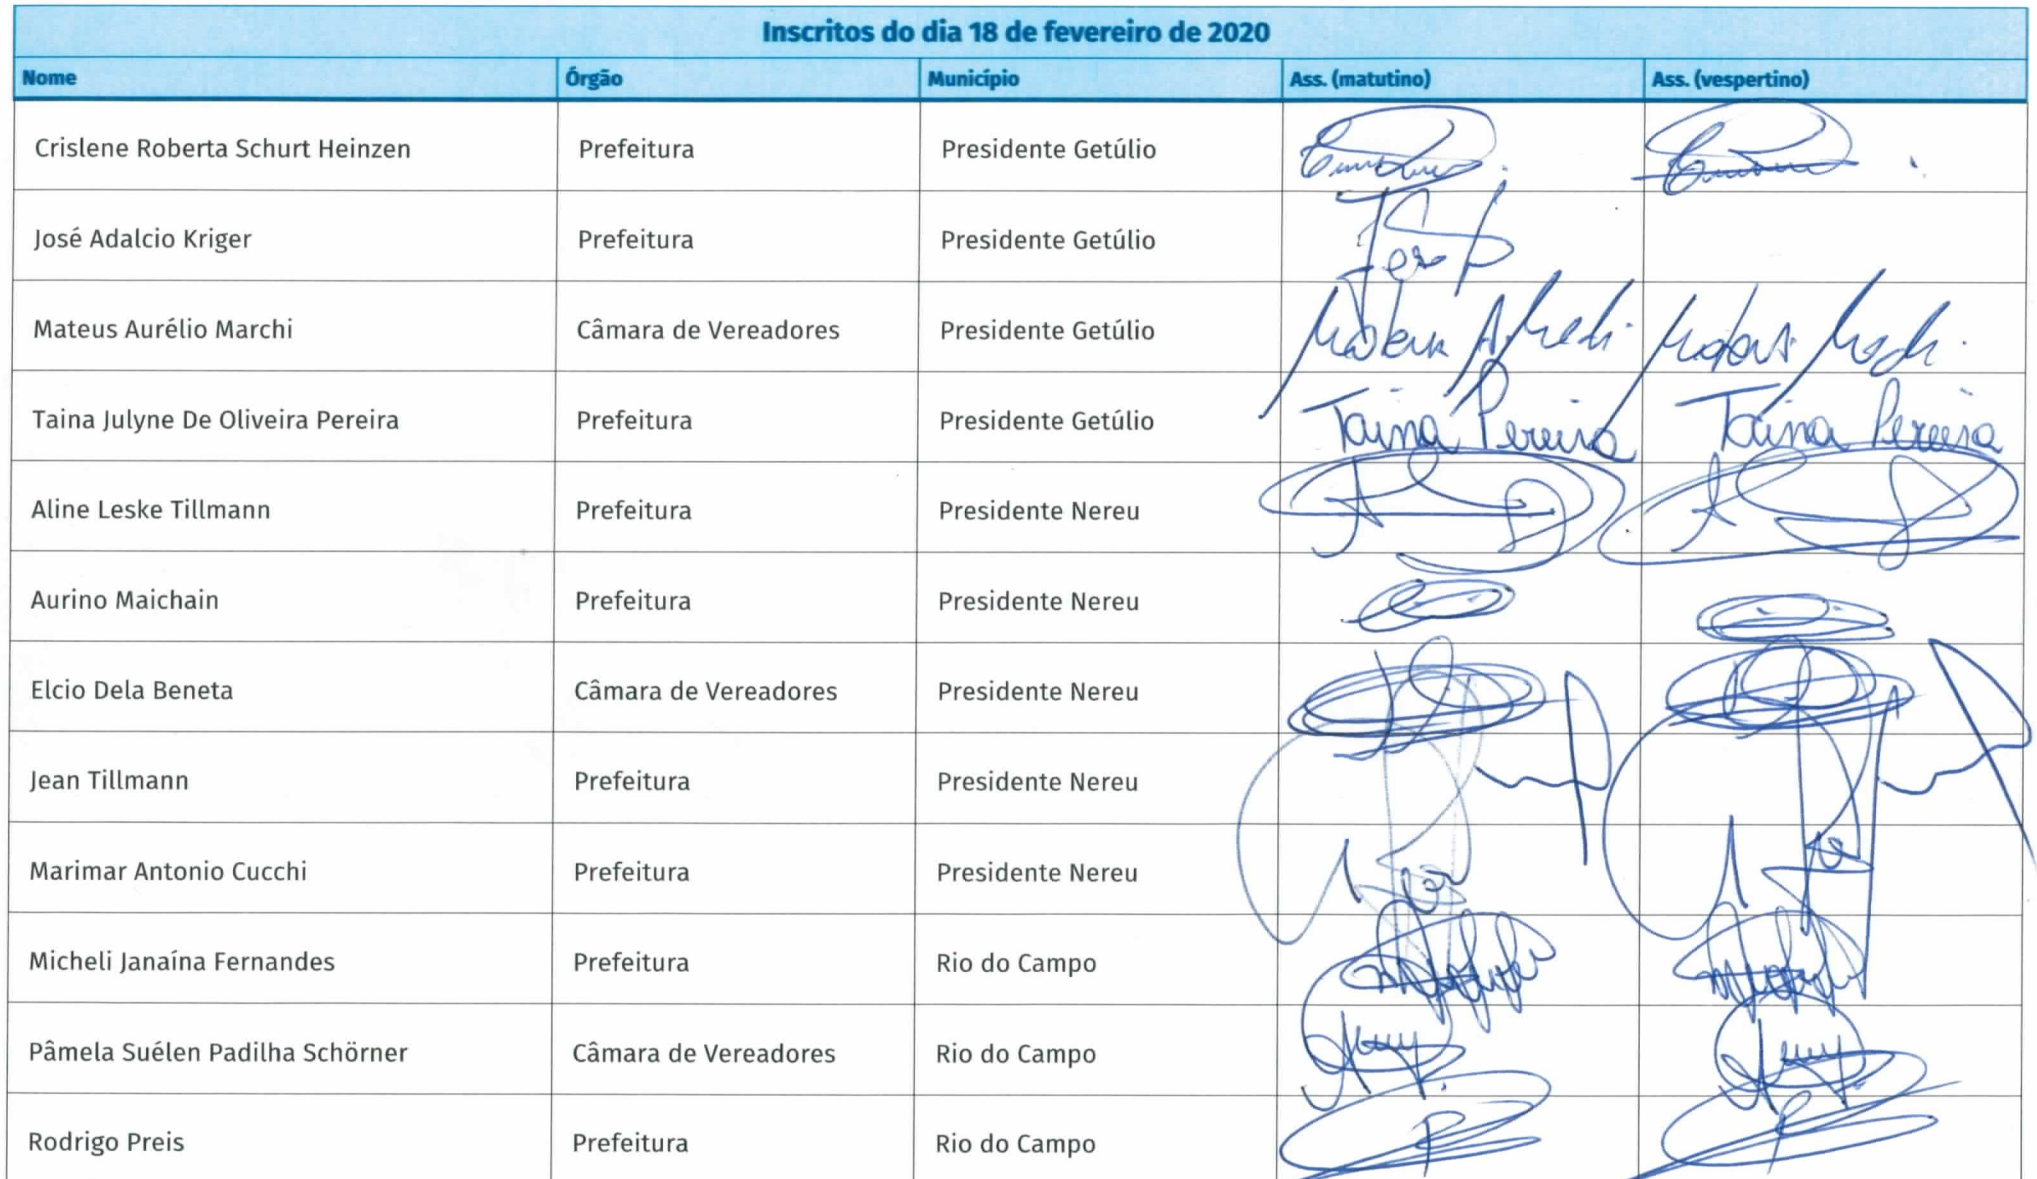 Inscritos do dia 18 de fevereiro de 2020
Nome Órgão Município Ass. (matutino) Ass. (vespertino)
Crislene Roberta Schurt Heinzen Prefeitura Presidente Getúlio
José Adalcio Kriger Prefeitura Presidente Getúlio
Mateus Aurélio Marchi Câmara de Vereadores Presidente Getúlio
Taina Julyne De Oliveira Pereira Prefeitura Presidente Getúlio Taina Pereira Taina Pereira
Aline Leske Tillmann Prefeitura Presidente Nereu
Aurino Maichain Prefeitura Presidente Nereu
Elcio Dela Beneta Câmara de Vereadores Presidente Nereu
Jean Tillmann Prefeitura Presidente Nereu
Marimar Antonio Cucchi Prefeitura Presidente Nereu
Micheli Janaína Fernandes Prefeitura Rio do Campo
Pâmela Suélen Padilha Schörner Câmara de Vereadores Rio do Campo
Rodrigo Preis Prefeitura Rio do Campo